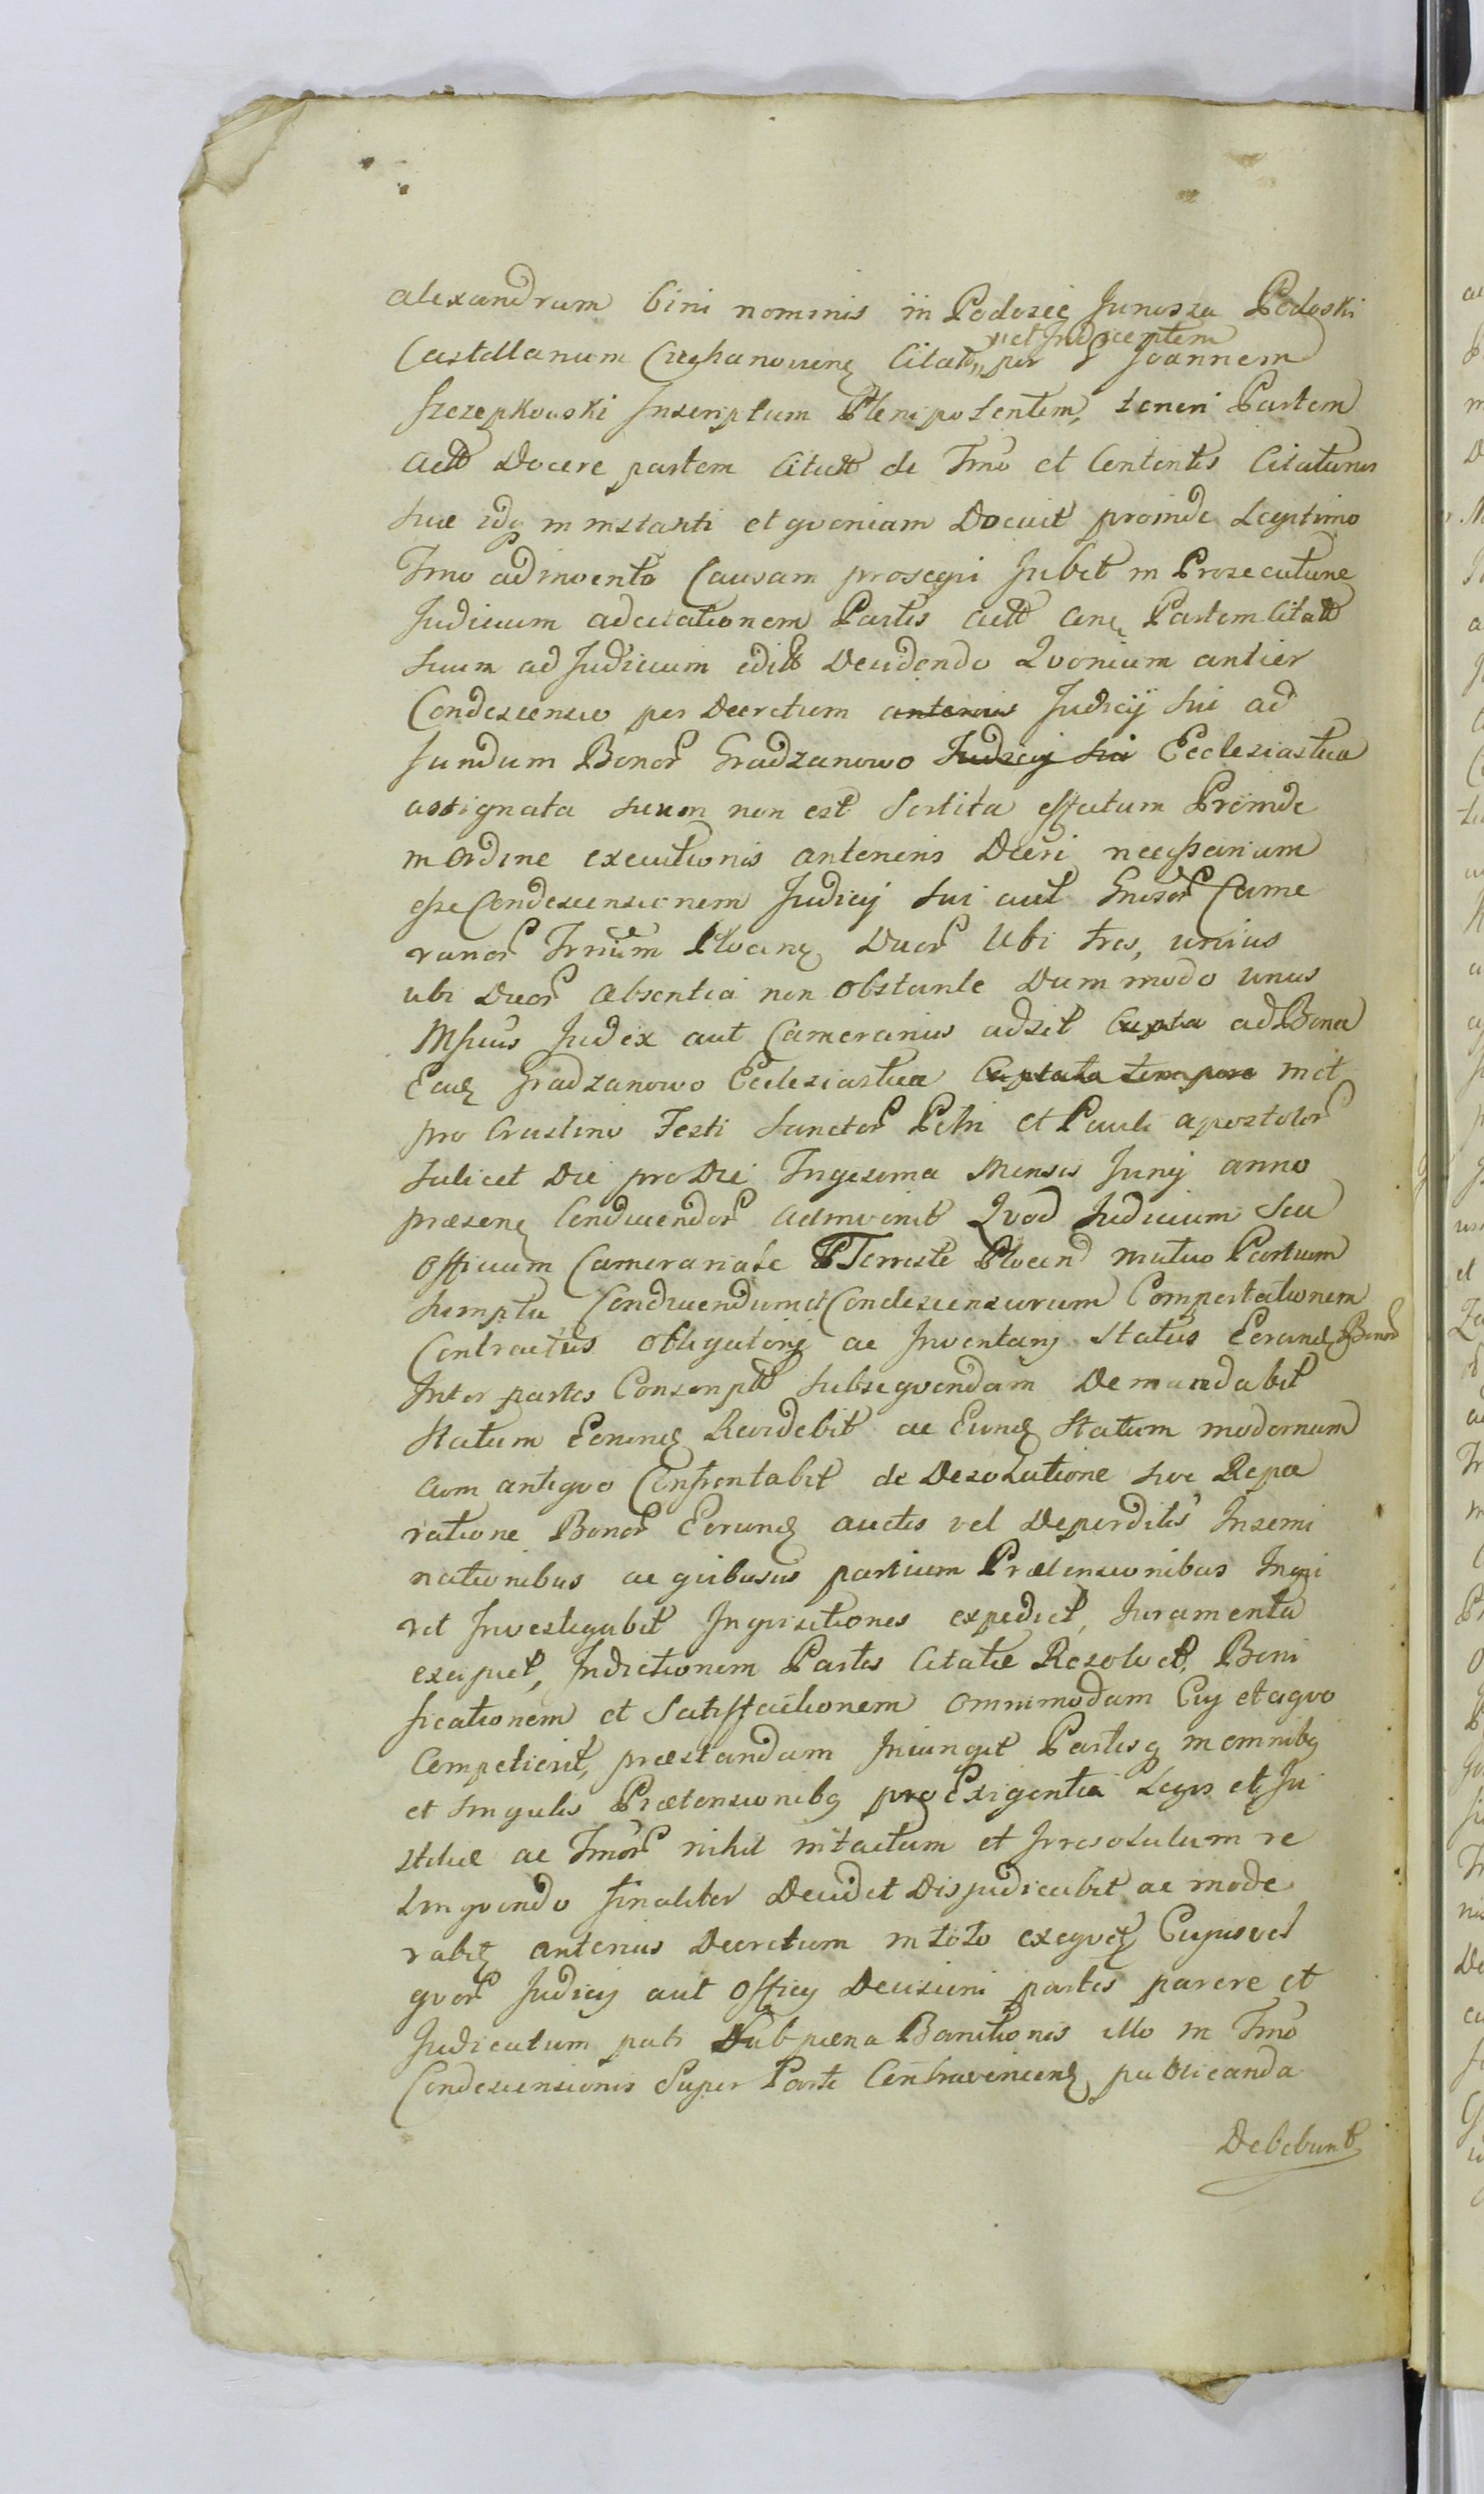 alexandrum bini nominis in Podosię Junosza Podoski
vel Judiceptem
Castellanum Ciechanovienę Citatu per Joannem
Szczepkowski Inscriptum Plenipotentem, teneri Partem
actt Docere partem Citatt de Tmo et Contentis Citationis
suæ idq in instanti et qvoniam Docuit proinde Legitimo
Tmo adinvento Causam proseqvi Jubet in Prosecutione
Judicium adcitationem Partis actt Partem Citatt
suum ad Judicium Decidendo Qvonium antier
Condescensio per Decretum anterius Judicij sui ad
fundum Bonor Gradzanowo Judicij sui Ecclesiastica
assignata suum non est Sortita effectum Proinde
in Ordine executionis anterioris Decri necessarium
esse Condescensionem Judicij sui aut Came
rarior Trrium Plocenę Duor Ubi tres, unius
ubi Duor absentia non Obstante Dum modo unus
Judex aut Camerarius adsit ad Bona
Eadę Gradzanowo Ecclesiastica Captato tempore
pro Crastino Festi Sanctor Petri et Pauli apostolor
scilicet Die pro Die Trigesima Mensis Junij anno
præsenę Conducendor adinvenit Qvod Judicium Seu
Officium Camerariale Terreste Plocen mutuo Partium
sumptu Conducendum et Condescensurum Comportationem
Contractus Obligatorij ac Inventarij Status Eorundę Bonor
Inter partes Conscriptt subseqvendam Demandabit
Statum Eorundę Revidebit ac Eundę Statum modernum
cum antiqvo Confrontabit de Desolatione sive Repa
ratione Bonor Eorundę auctis vel Deperditis Insemi
nationibus ac qvibusvis partium Prætensionibus Inqvi
ret Investigabit Inqvisitiones expediet, Juramenta
excipiet, Indictionem Partis Citatæ Resolvet, Boni
ficationem et Satisfactionem omnimodam Cuj et aqvo
Competierit, præstandam Iniunget Partisq in omnibq
et singulis Prætensionibq pro Exigentia Legis et Ju
stitiæ ac Tmor nihil intactum et Irresolutum re
linqvendo finaliter Decidet Disjudicabit ac mode
rabitę anterius Decretum in toto exeqvetę Cujusvel
qvor Judicij aut Officij Decisioni partes parere et
Judicatum pati Sub pæna Banitionis illo in Tmo
Condescensionis Super Parte Contraveniendę publicanda
Debebunt